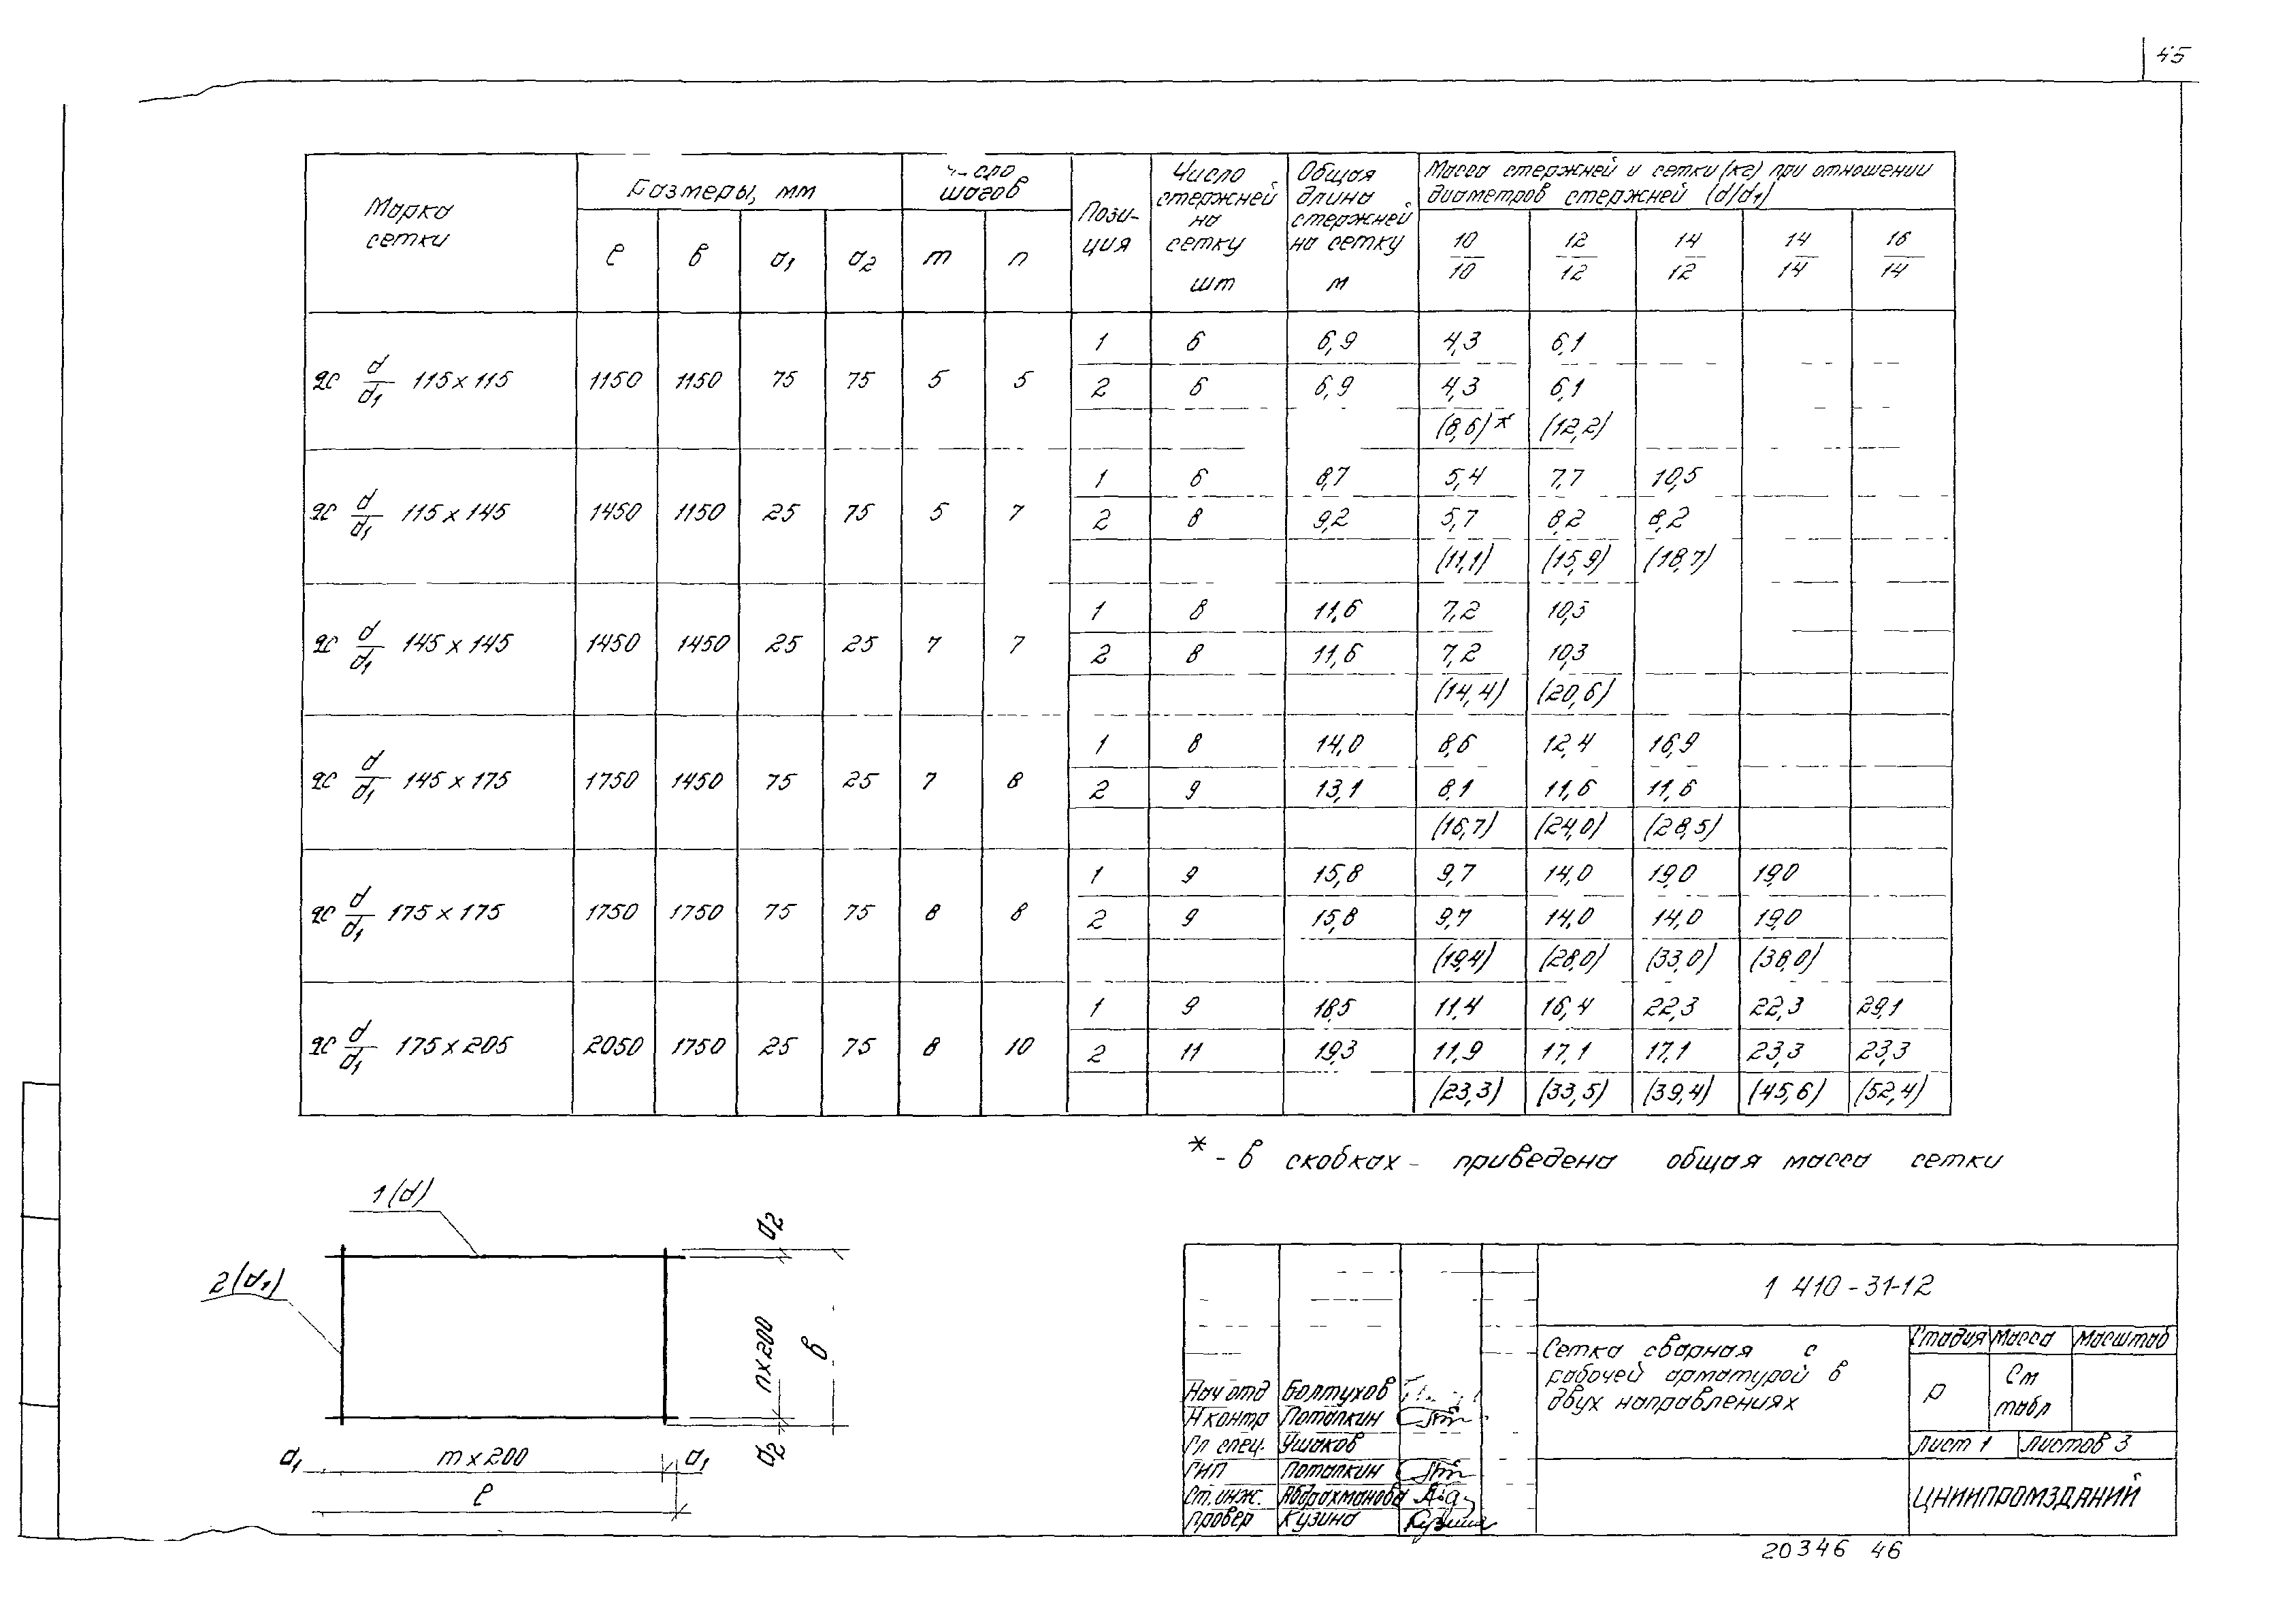 45
Марка сетки | Размеры, мм | Число шагов | Пози-ция | Число стержней на сетку шт | Общая длина стержней на сетку м | Масса стержней и сетки (кг) при отношении диаметров стержней (d/d1)
ℓ | в | a1 | a2 | m | n | 10/10 | 12/12 | 14/12 | 14/14 | 16/14
2С d/d1 115×115 | 1150 | 1150 | 75 | 75 | 5 | 5
1 | 6 | 6,9 | 4,3 | 6,1
2 | 6 | 6,9 | 4,3 | 6,1
(8,6)* | (12,2)
2С d/d1 115×145 | 1450 | 1150 | 25 | 75 | 5 | 7
1 | 6 | 8,7 | 5,4 | 7,7 | 10,5
2 | 8 | 9,2 | 5,7 | 8,2 | 8,2
(11,1) | (15,9) | (18,7)
2С d/d1 145×145 | 1450 | 1450 | 25 | 25 | 7 | 7
1 | 8 | 11,6 | 7,2 | 10,3
2 | 8 | 11,6 | 7,2 | 10,3
(14,4) | (20,6)
2С d/d1 145×175 | 1750 | 1450 | 75 | 25 | 7 | 8
1 | 8 | 14,0 | 8,6 | 12,4 | 16,9
2 | 9 | 13,1 | 8,1 | 11,6 | 11,6
(16,7) | (24,0) | (28,5)
2С d/d1 175×175 | 1750 | 1750 | 75 | 75 | 8 | 8
1 | 9 | 15,8 | 9,7 | 14,0 | 19,0 | 19,0
2 | 9 | 15,8 | 9,7 | 14,0 | 14,0 | 19,0
(19,4) | (28,0) | (33,0) | (38,0)
2С d/d1 175×205 | 2050 | 1750 | 25 | 75 | 8 | 10
1 | 9 | 18,5 | 11,4 | 16,4 | 22,3 | 22,3 | 29,1
2 | 11 | 19,3 | 11,9 | 17,1 | 17,1 | 23,3 | 23,3
(23,3) | (33,5) | (39,4) | (45,6) | (52,4)
* - в скобках - приведена общая масса сетки
1(d)
2(d1)
a2
n×200
в
a2
a1 m×200 a1
ℓ
1 410-31-12
Сетка сварная с
рабочей арматурой в
двух направлениях
Стадия Масса Масштаб
Р
См
табл
Лист 1 Листов 3
ЦНИИПРОМЗДАНИЙ
Нач отд Болтухов
Н контр Потапкин
Гл спец. Ушаков
ГИП Потапкин
Ст. инж. Абдрахманова
Провер Кузина
20346 46